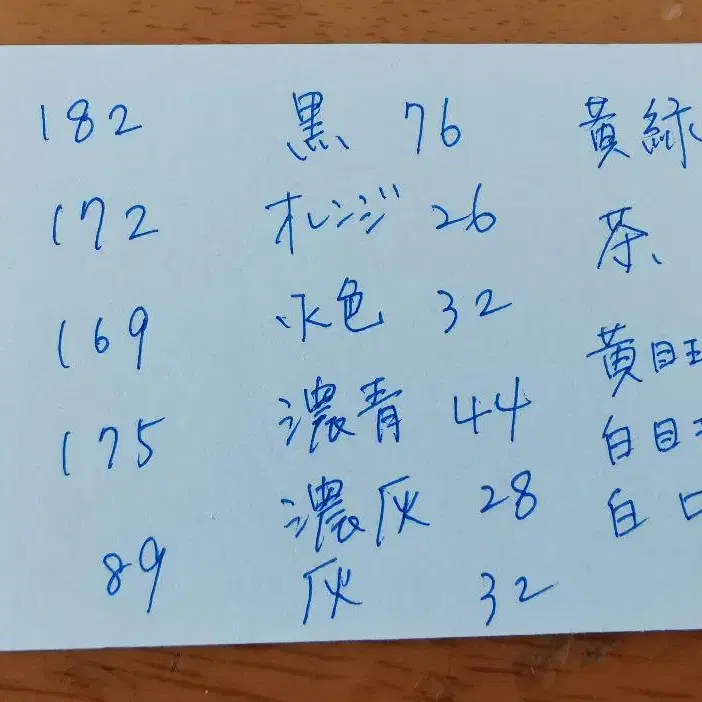 182 黒 76 黄緑
172 オレンジ 26 茶
169 水色 32
175 濃青 44 黄目玉
濃灰 28 白目
89 灰 32 白